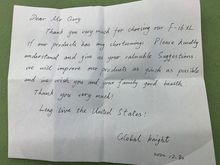 Dear Mr Guy
Thank you very much for choosing our F-16XL
If our products has my shortcomings, Please kindly
understand and give us your valuable Suggestions
we will improve our products as quick as possible
and we wish you and your family good health.
Thank you very much!
Long live the United States!
Global knight